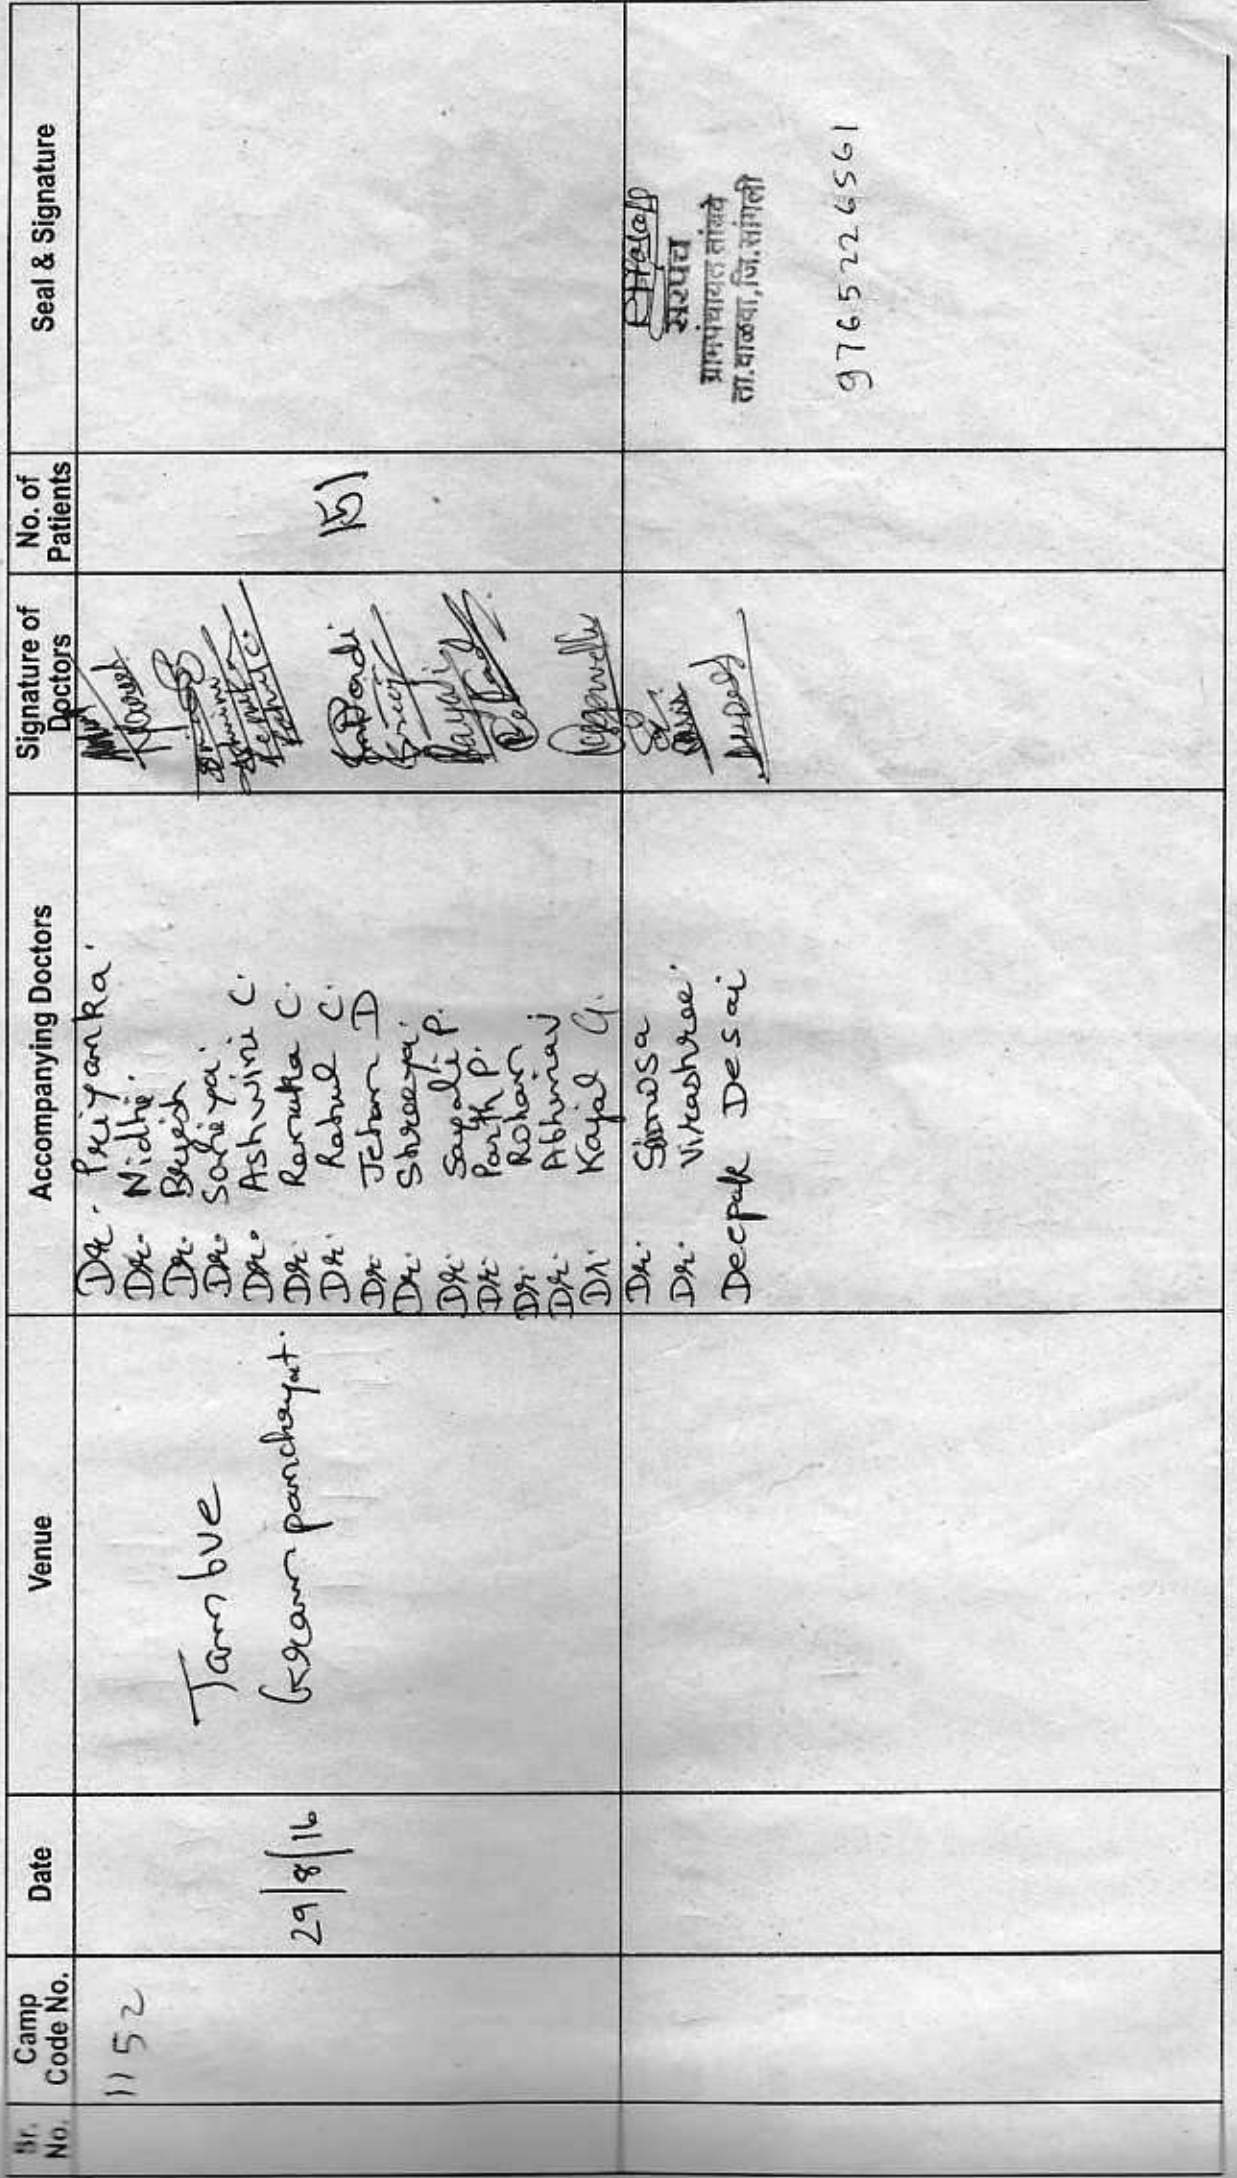 Sr. No.
Camp Code No.
Date
Venue
Accompanying Doctors
Signature of Doctors
No. of Patients
Seal & Signature
1152
29/8/16
Tambve
Gram panchayat.
Dr. Priyanka
Dr. Nidhi
Dr. Brijesh
Dr.
Dr. Ashwini C.
Dr. Renuka C.
Dr. Rahul C.
Dr. Jehan D
Dr. Shreeya
Dr. Sayali P.
Dr. Parth P.
Dr. Rohan
Dr. Abhinav
Dr. Kajal G.
Dr.
Dr. Virashree
Deepak Desai
151
सरपंच
ग्रामपंचायत तांबवे
ता.वाळवा,जि.सांगली
9765226561